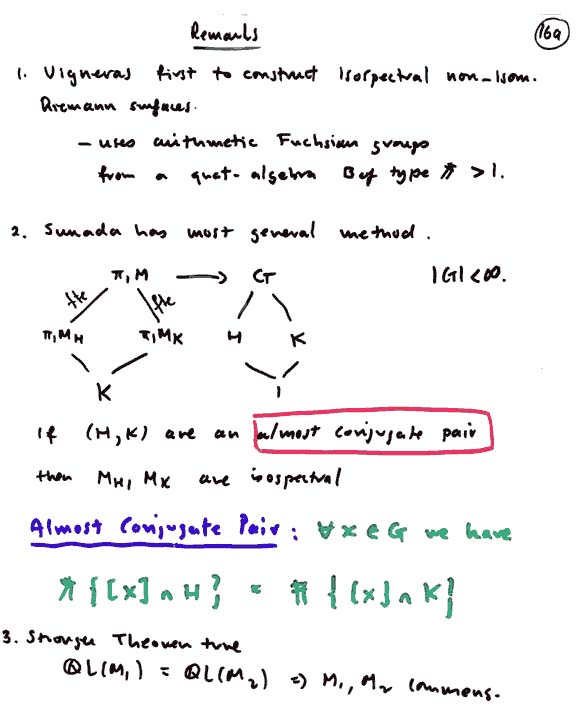 Remarks
16a
1. Vigneras first to construct isospectral non-isom.
Riemann surfaces.
- uses arithmetic Fuchsian groups
from a quat-algebra B of type # > 1.
2. Sunada has most general method.
π₁M → G |G| < ∞.
fte fte
π₁M_H π₁M_K H K
K 1
If (H, K) are an almost conjugate pair
then M_H, M_K are isospectral
Almost Conjugate Pair: ∀ x ∈ G we have
# { [x] ∩ H } = # { [x] ∩ K }
3. Stronger Theorem true
QL(M₁) = QL(M₂) ⇒ M₁, M₂ commens.